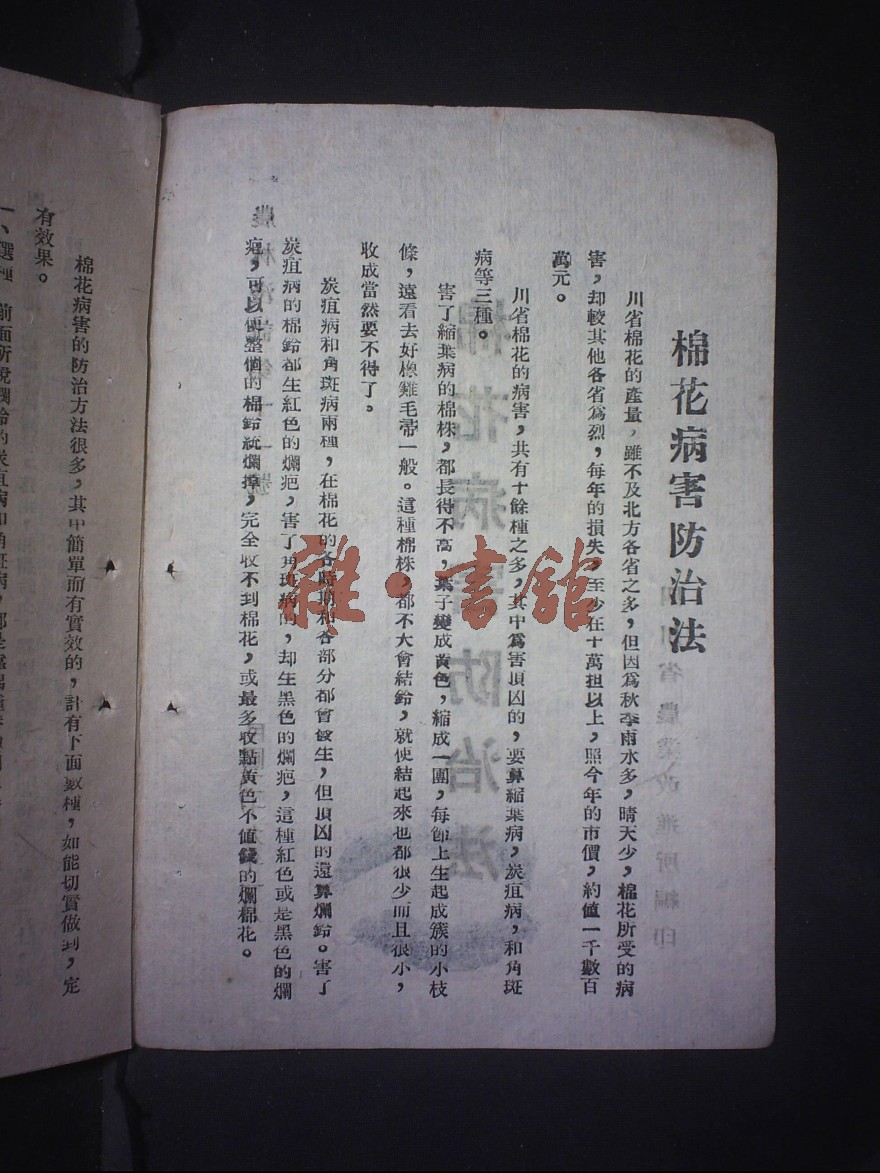 棉花病害防治法
川省棉花的產量，雖不及北方各省之多，但因爲秋季雨水多，晴天少，棉花所受的病
害，却較其他各省爲烈，每年的損失，至少在十萬担以上，照今年的市價，約値一千數百
萬元。
川省棉花的病害，共有十餘種之多，其中爲害頂凶的，要算縮葉病，炭疽病，和角斑
病等三種。
害了縮葉病的棉株，都長得不高，葉子變成黄色，縮成一團，每節上生起成簇的小枝
條，遠看去好像雞毛帚一般。這種棉株，都不大會結鈴，就使結起來也都很少而且很小，
收成當然要不得了。
炭疽病和角斑病兩種，在棉花的各時期和各部分都會發生，但頂凶的還算爛鈴。害了
炭疽病的棉鈴都生紅色的爛疤，害了角斑病的，却生黑色的爛疤，這種紅色或是黑色的爛
疤，可以使整個的棉鈴統爛掉，完全收不到棉花，或最多收點黃色不値錢的爛棉花。
棉花病害的防治方法很多，其中簡單而有實效的，計有下面數種，如能切實做到，定
有效果。
一、選種 前面所說爛鈴的炭疽病和角斑病，都是
雜·書館